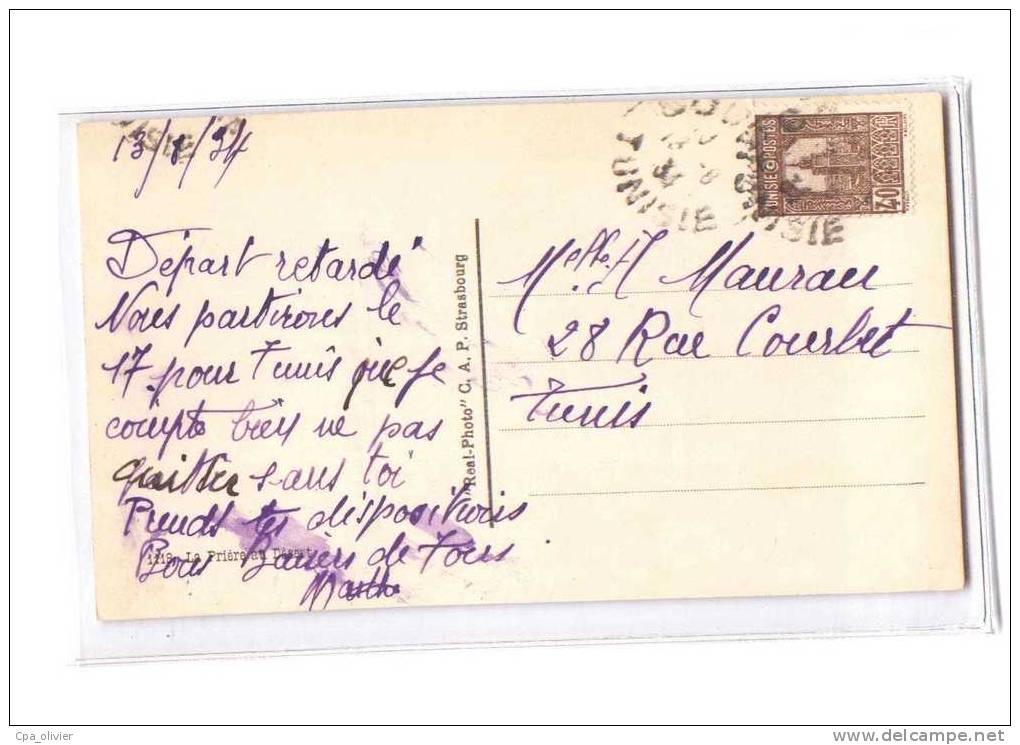 13/8/34
TUNISIE
TUNISIE POSTES
40
Départ retardé
Nous partirons le
17 pour Tunis que je
compte bien ne pas
quitter sans toi
Prends tes dispositions
Bons Baisers de Tous
Marthe
1118. La Prière au Désert
"Real-Photo" C. A. P. Strasbourg
Melle A Maurau
28 Rue Courbet
Tunis
Cpa_olivier
www.delcampe.net